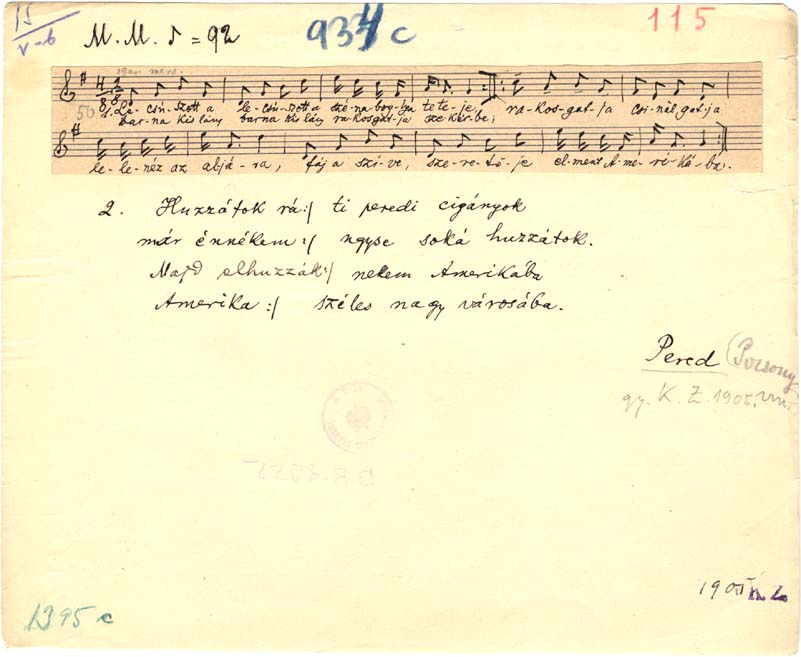 15
V-6
M. M. ♪ = 92
934 c
115
50 1. Le-csú-szott a le-csú-szott a szé-na-bog-lya te-te-je, ra-kos-gat-ja csi-nál-gat-ja
bar-na kis lány barna kis lány rakosgat-ja szekér-be;
le-le-néz az aljá-ra, fáj a szí-ve, sze-re-tő-je elment A-me-ri-ká-ba.
2. Huzzátok rá:/ ti peredi cigányok
már énnékem:/ ugyse soká huzzátok.
Majd elhuzzák:/ nekem Amerikába
Amerika:/ széles nagy városába.
Pered (Pozsony
gy. K. Z. 1905. VIII.
1905 K. Z.
1395 c